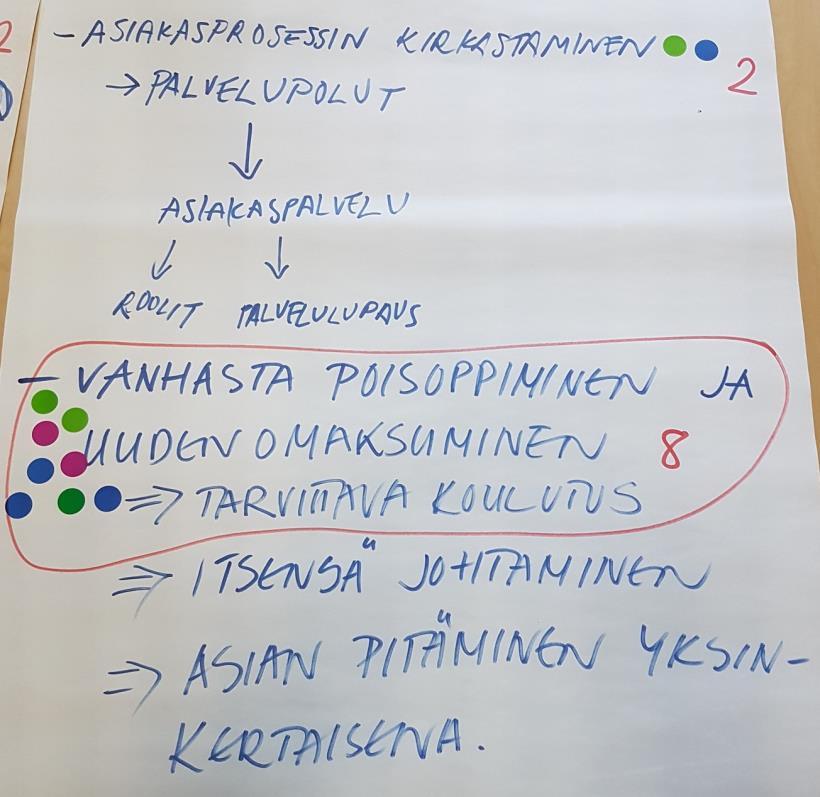 - ASIAKASPROSESSIN KIRKASTAMINEN 2
→ PALVELUPOLUT
↓
ASIAKASPALVELU
↓ ↓
ROOLIT PALVELULUPAUS
- VANHASTA POISOPPIMINEN JA
UUDEN OMAKSUMINEN 8
⇒ TARVITTAVA KOULUTUS
⇒ ITSENSÄ JOHTAMINEN
⇒ ASIAN PITÄMINEN YKSIN-
KERTAISENA.